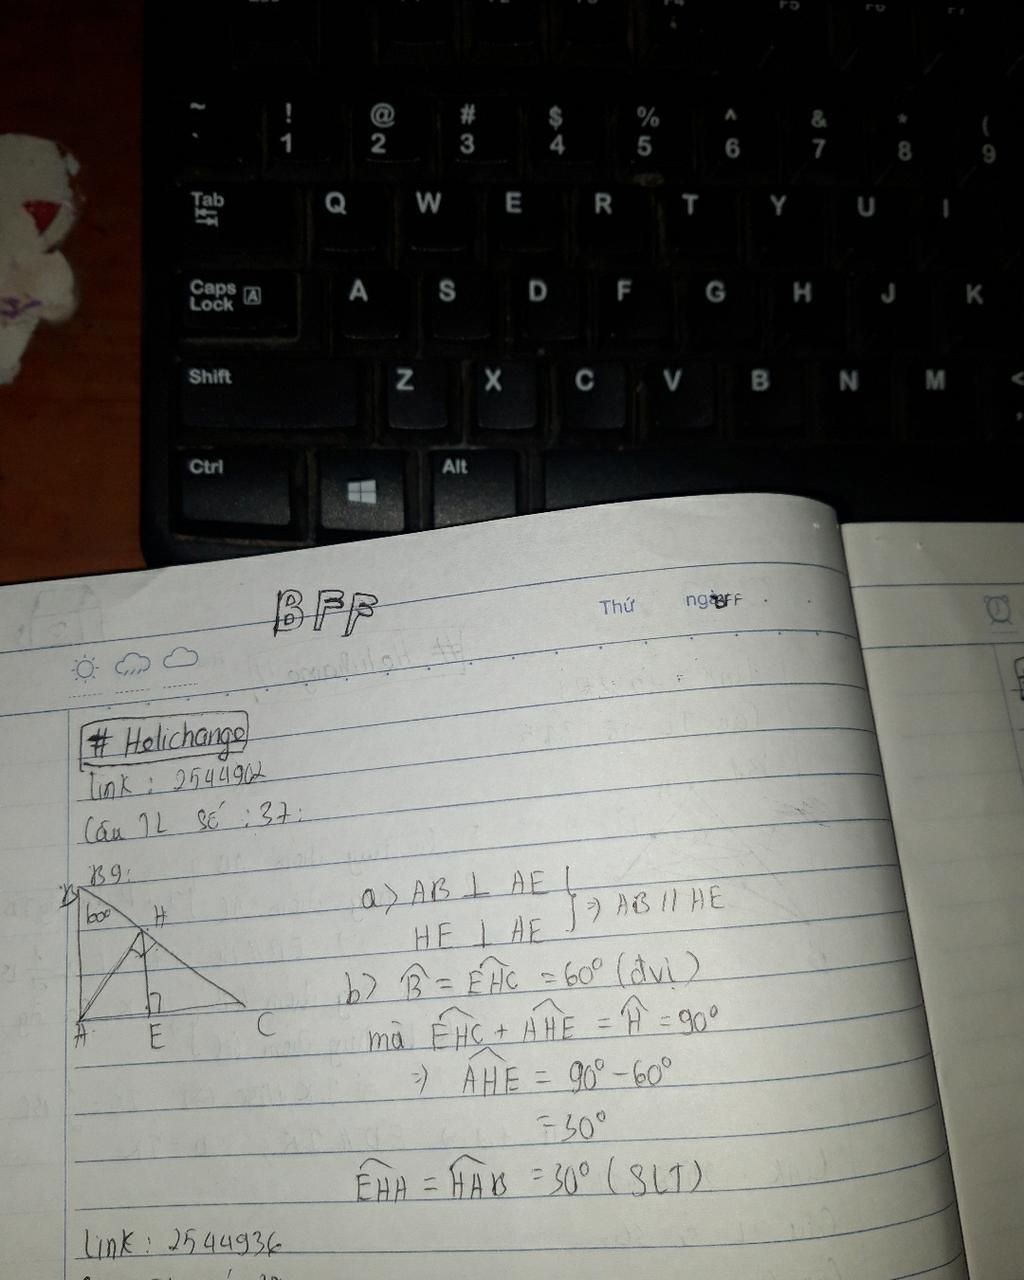 F4 F5 F6 F7
~ ! @ # $ % ^ & * (
` 1 2 3 4 5 6 7 8 9
Tab Q W E R T Y U I
Caps Lock A A S D F G H J K
Shift Z X C V B N M <
,
Ctrl Alt
BFF
Thứ ngày BFF
# Helichange
link : 2544902
Câu TL số : 37:
B9:
B
60°
H
A
E
C
a) AB ⊥ AE
HE ⊥ AE } ⇒ AB // HE
b) B̂ = EĤC = 60° (đvị)
mà EĤC + AĤE = Ĥ = 90°
⇒ AĤE = 90° - 60°
= 30°
EĤA = HÂB = 30° (SLT)
link : 2544936